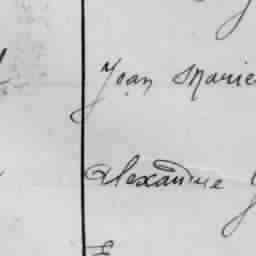 Jean Marie
Alexandrine